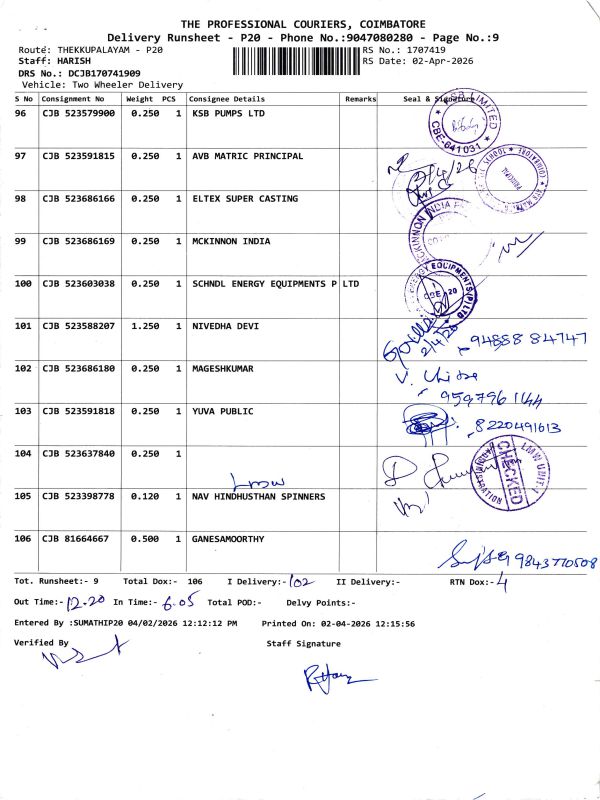 THE PROFESSIONAL COURIERS, COIMBATORE
Delivery Runsheet - P20 - Phone No.:9047080280 - Page No.:9
Route: THEKKUPALAYAM - P20
RS No.: 1707419
Staff: HARISH
RS Date: 02-Apr-2026
DRS No.: DCJB170741909
Vehicle: Two Wheeler Delivery
S No Consignment No Weight PCS Consignee Details Remarks Seal & Signature
96 CJB 523579900 0.250 1 KSB PUMPS LTD
KSB LIMITED CBE-641031
97 CJB 523591815 0.250 1 AVB MATRIC PRINCIPAL
98 CJB 523686166 0.250 1 ELTEX SUPER CASTING
99 CJB 523686169 0.250 1 MCKINNON INDIA
MCKINNON INDIA
100 CJB 523603038 0.250 1 SCHNDL ENERGY EQUIPMENTS P LTD
ENERGY EQUIPMENTS(P)LTD
CBE 20
101 CJB 523588207 1.250 1 NIVEDHA DEVI
2/4/26 94888 84747
102 CJB 523686180 0.250 1 MAGESHKUMAR
9597961144
103 CJB 523591818 0.250 1 YUVA PUBLIC
8220491613
104 CJB 523637840 0.250 1
LMW
LMW UNIT-I CHECKED
105 CJB 523398778 0.120 1 NAV HINDHUSTHAN SPINNERS
106 CJB 81664667 0.500 1 GANESAMOORTHY
9843770508
Tot. Runsheet:- 9 Total Dox:- 106 I Delivery:- 102 II Delivery:- RTN Dox:- 4
Out Time:- 12.20 In Time:- 6.05 Total POD:- Delvy Points:-
Entered By :SUMATHIP20 04/02/2026 12:12:12 PM Printed On: 02-04-2026 12:15:56
Verified By Staff Signature